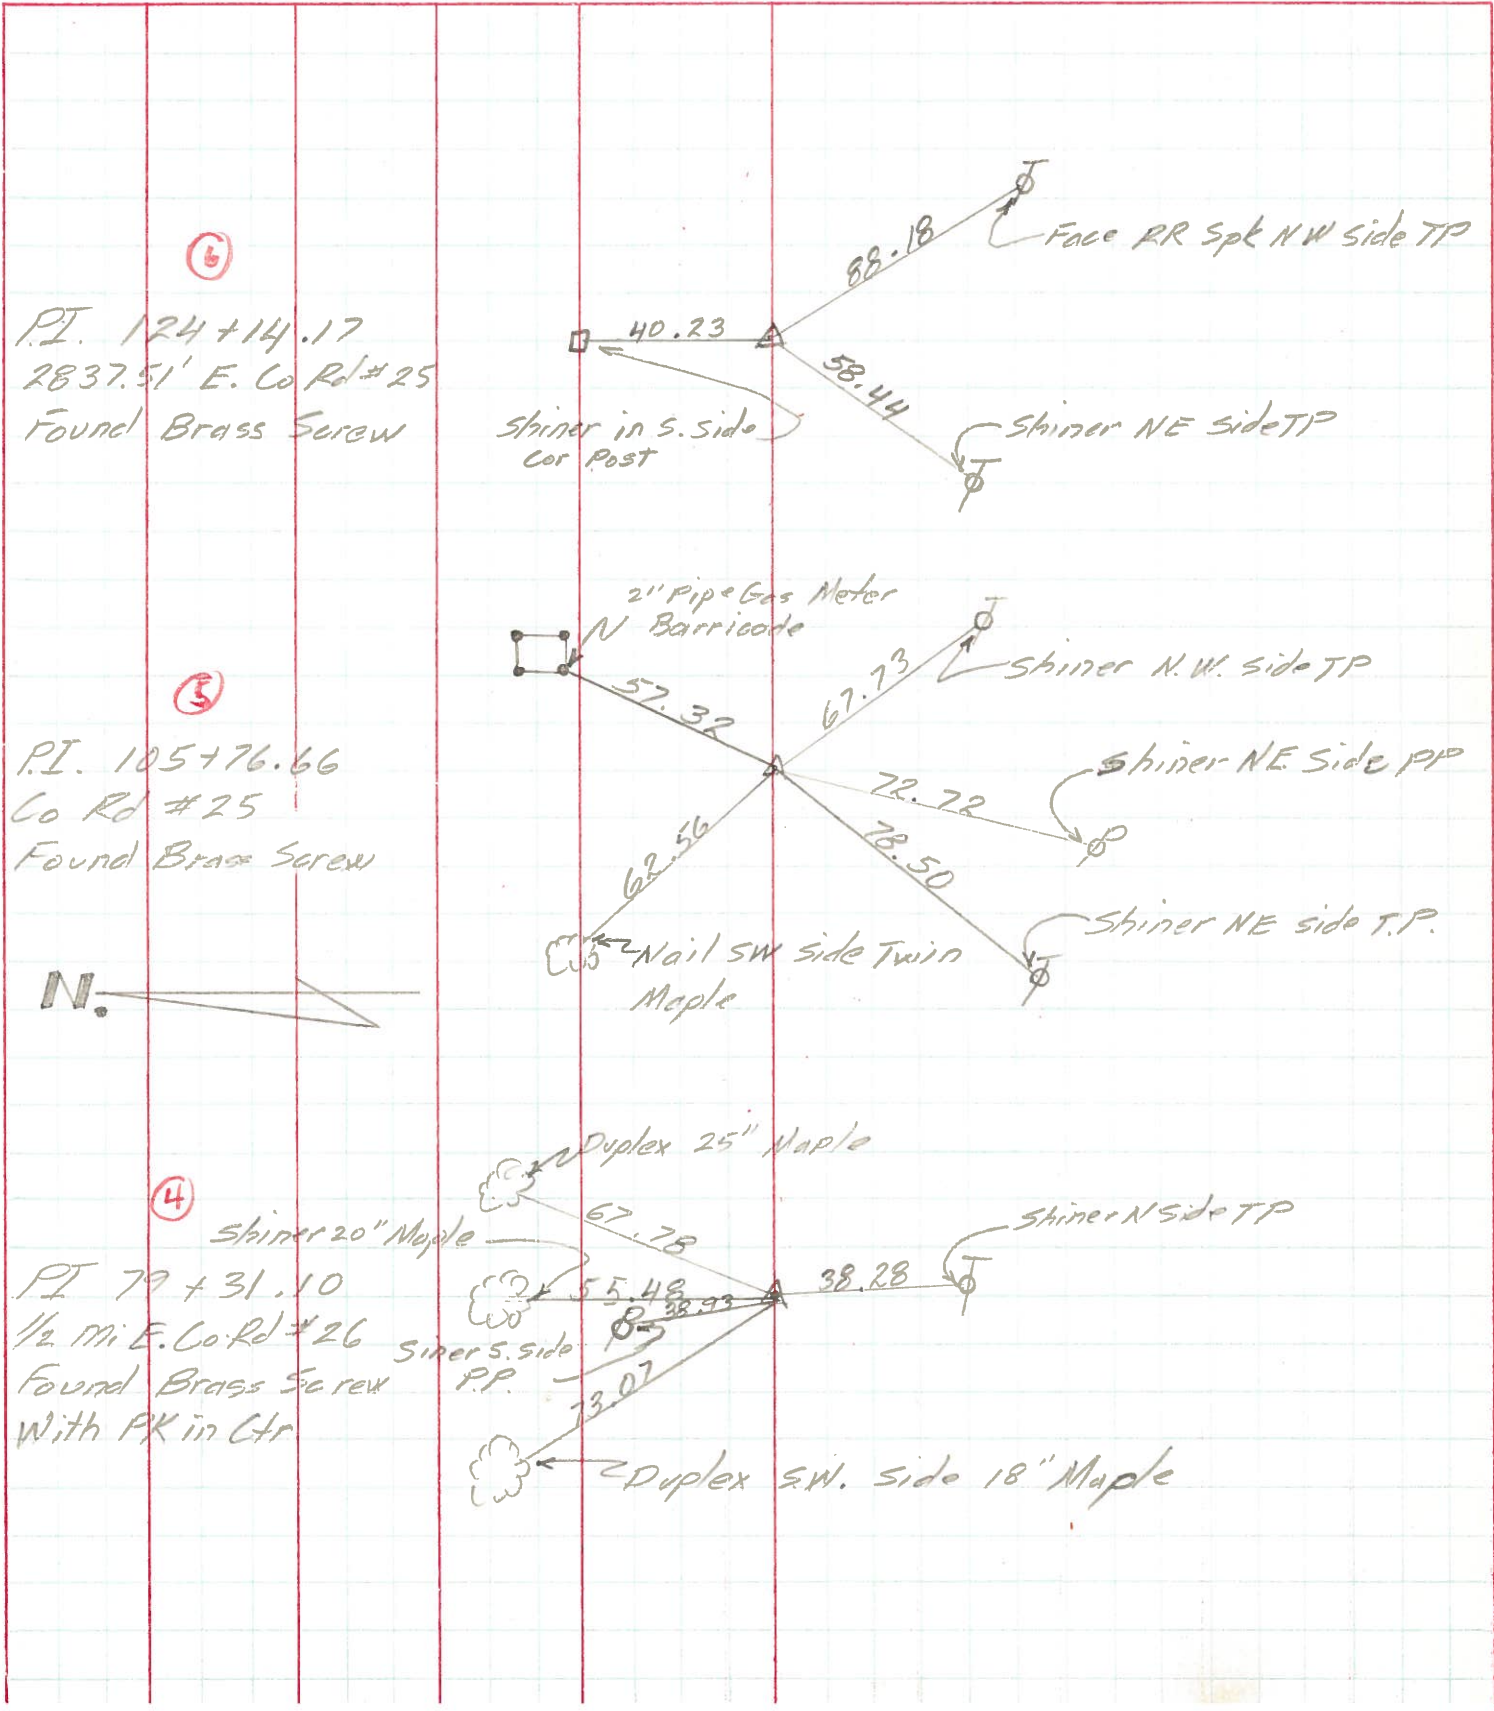 6
P.I. 124+14.17
2837.51' E. Co Rd #25
Found Brass Screw
88.18
Face RR Spk NW Side TP
40.23
58.44
Shiner in S. Side
Cor Post
Shiner NE Side TP
5
P.I. 105+76.66
Co Rd #25
Found Brass Screw
2" Pipe Gas Meter
Barricade
57.32
67.73
Shiner N.W. Side TP
72.72
Shiner NE Side PP
78.50
Shiner NE side T.P.
62.56
Nail SW side Twin
Maple
N.
4
PI 79+31.10
1/2 mi E. Co. Rd #26
Found Brass Screw
With PK in Ctr
Duplex 25" Maple
67.78
Shiner 20" Maple
55.48
38.28
Shiner N Side TP
38.93
Siner S. Side
P.P.
73.07
Duplex S.W. Side 18" Maple